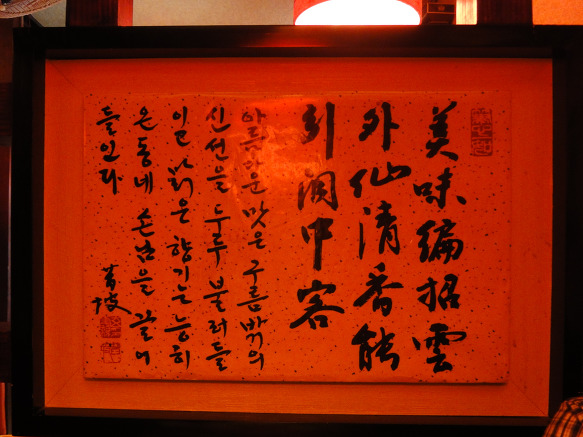 美味編招雲
外仙清香能
引洞中客
아름다운 맛은 구름 밖의
신선을 두루 불러들
이고 맑은 향기는 능히
온 동네 손님을 끌어
들인다
青坡